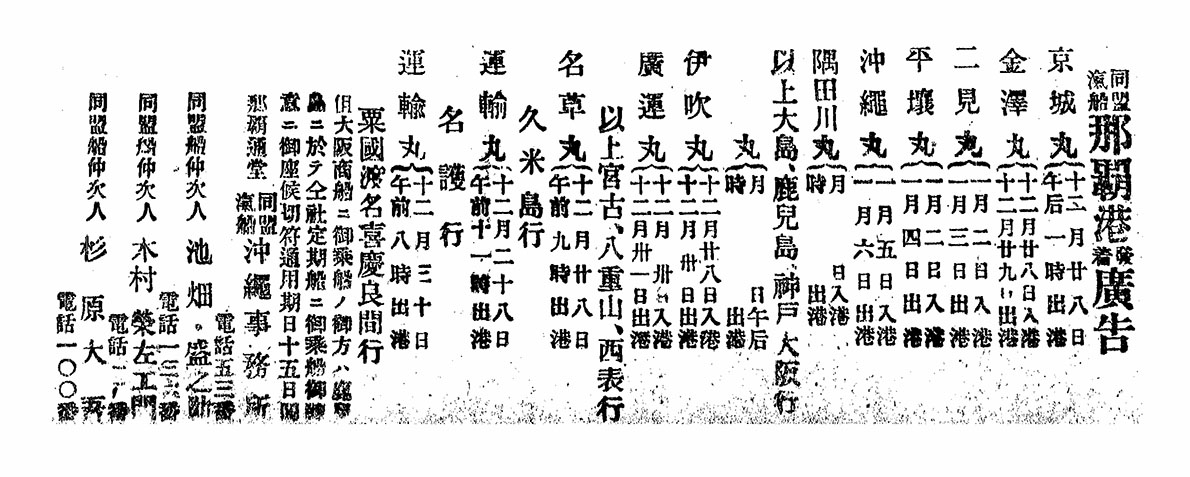 同盟
滊船
那覇港
發
着
廣告
京城丸
十二月廿八日
午后一時出港
金澤丸
十二月廿八日入港
十二月廿九日出港
二見丸
一月二日入港
一月三日出港
平壤丸
一月二日入港
一月四日出港
沖繩丸
一月五日入港
一月六日出港
隅田川丸
月 日入港
時 出港
以上大島、鹿兒島、神戸大阪行
丸
月 日午后
時 出港
伊吹丸
十二月廿八日入港
十二月卅日出港
廣運丸
十二月卅日入港
十二月卅一日出港
以上宮古、八重山、西表行
名草丸
十二月廿八日
午前九時出港
久米島行
運輸丸
十二月二十八日
午前十一時出港
名護行
運輸丸
十二月三十日
午前八時出港
粟國渡名喜慶良間行
但大阪商船ニ御乘船ノ御方ハ鹿兒
島ニ於テ仝社定期船ニ御乘船御
意ニ御座候切符通用期日十五日間
那覇通堂
同盟
滊船
沖繩事務所
電話五三番
同盟船仲次人 池畑盛之助
電話一三三番
同盟船仲次人 木村榮左エ門
電話
番
同盟船仲次人 杉原大
電話一〇〇番